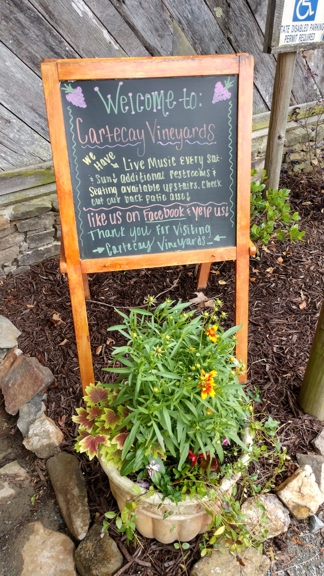 Welcome to:
Cartecay Vineyards
We Have Live Music Every Sat
+ Sun↓ additional restrooms &
Seating available upstairs, check
out our back patio also↓
like us on Facebook & yelp us↓
Thank you for Visiting
Cartecay Vineyards!
STATE DISABLED PARKING
PERMIT REQUIRED